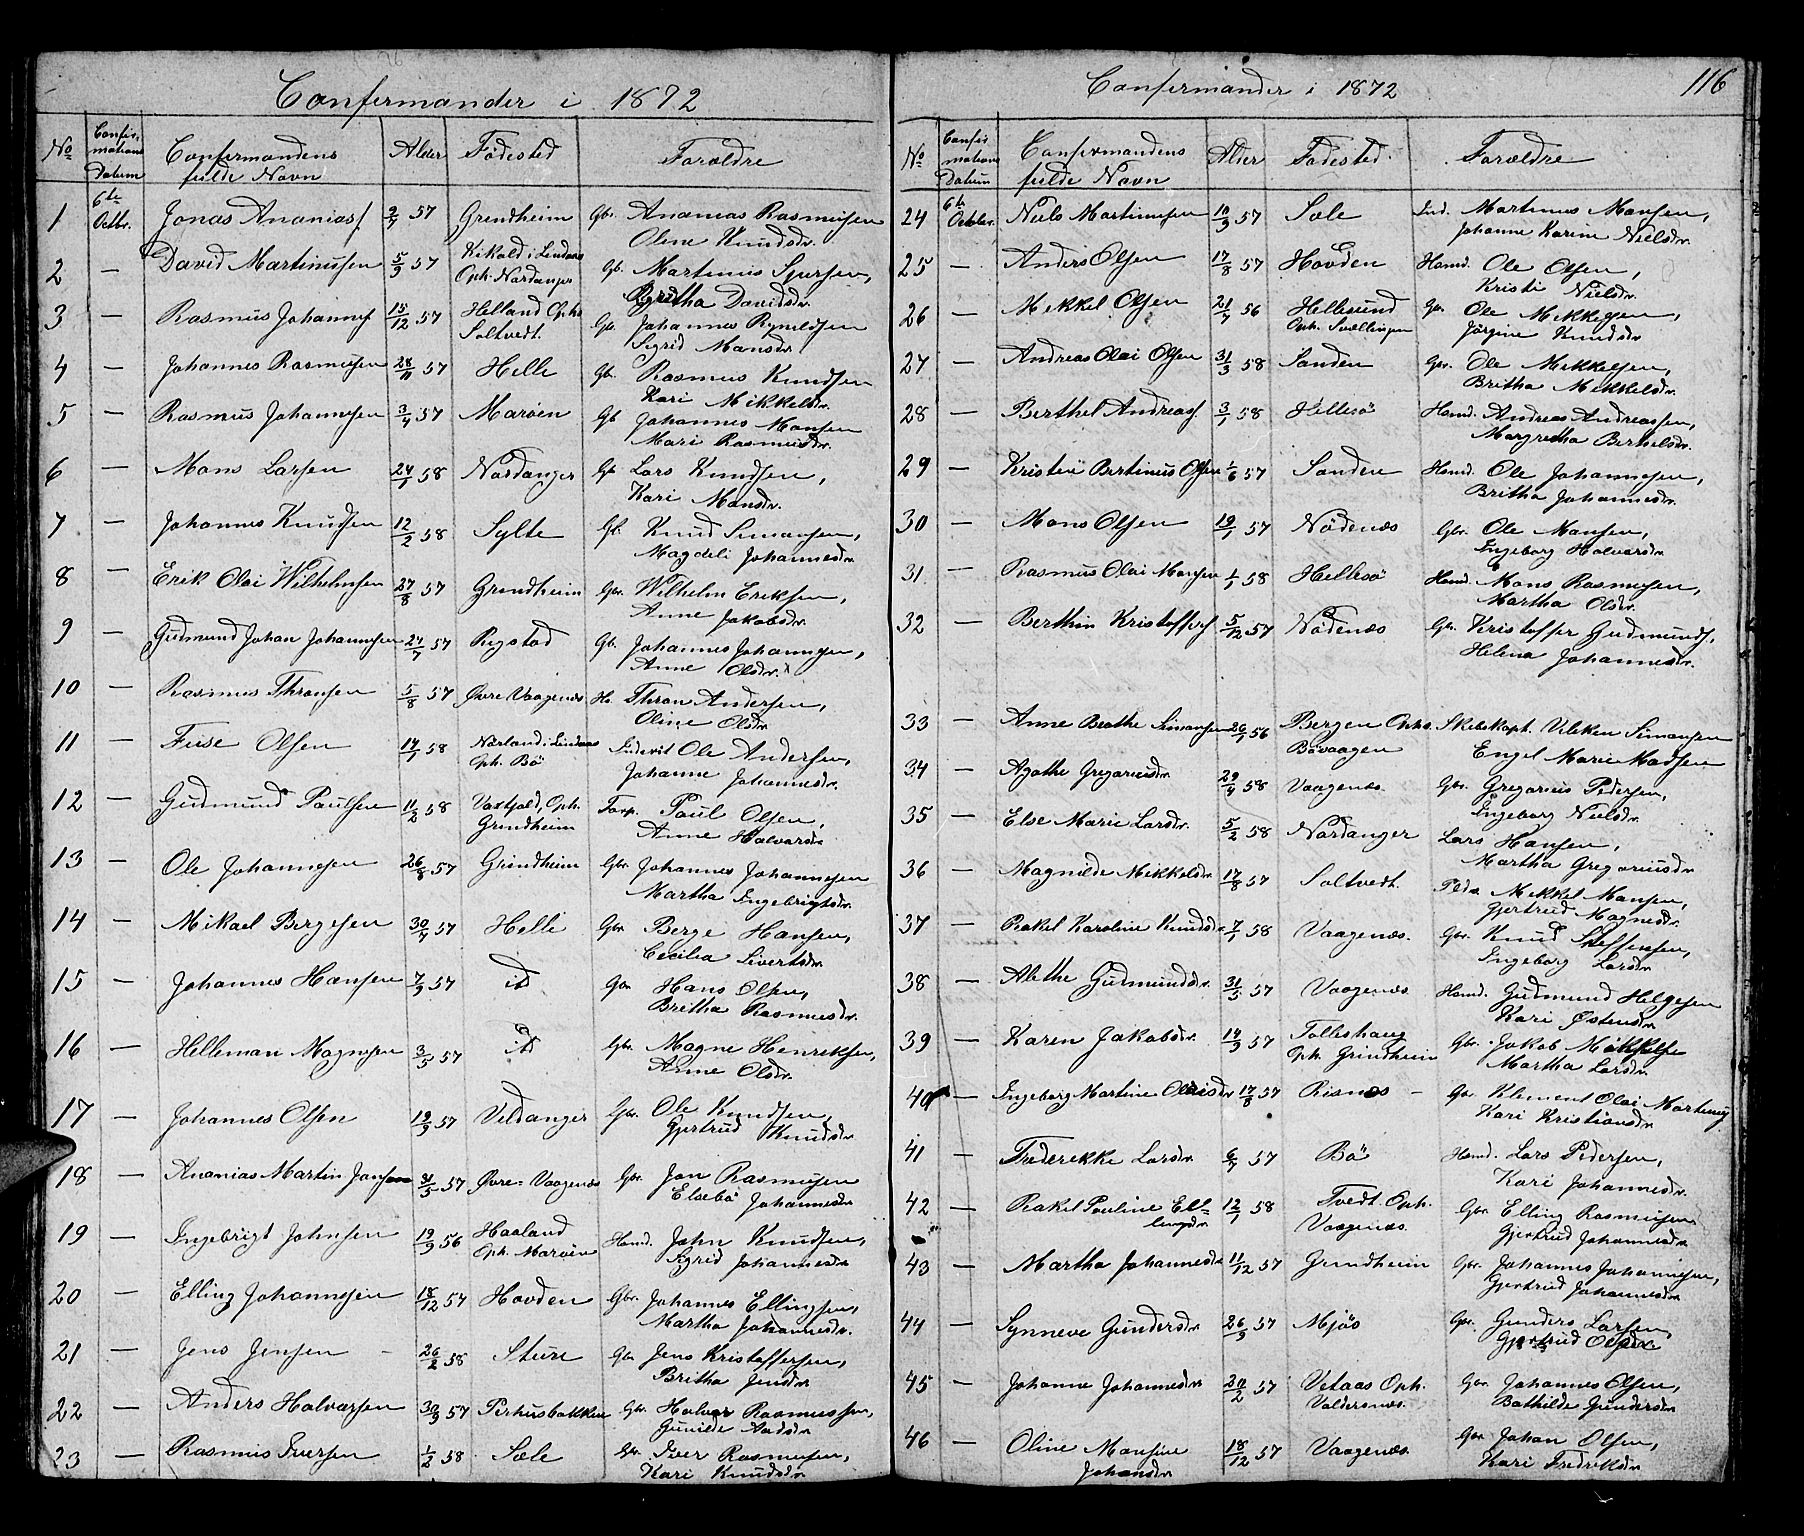 Confirmander i 1872
No Confirmations Datum Confirmandens fulde Navn Alder Födested Forældre
1 6te Octbr. Jonas Ananias/. 9/7 57 Grendheim Gbr. Ananias Rasmussen
Oline Knudsdr.
2 — David Martinussen 5/9 57 Lindaas Gb. Martinus Sjursen,
Oph. Nordanger Davidsdr.
3 — Rasmus Johannes/ 15/12 57 Helland Oph. Gb. Johannes
Soltvedt. Sigrid Monsdr.
4 — Johannes Rasmussen 28/11 57 Helle Gb. Rasmus Knudsen
Kari Mikkelsdr.
5 — Rasmus Johannesen 3/4 57 Maröen Gb. Johannes Monsen
Mari Rasmusdr.
6 — Mons Larsen 24/1 58 Nordanger Gb. Lars Knudsen,
Kari Monsdr.
7 — Johannes Knudsen 12/2 58 Sylte Gb. Knud Simonsen,
Magdeli Johannesdr.
8 — Erik Olai Wilhelmsen 27/8 57 Grendheim Gbr. Wilhelm Eriksen,
Anne Jakobsdr.
9 — Gudmund Johan Johannesen 24/7 57 Rystad Gb. Johannes Johannesen,
Anne Olsdr.
10 — Rasmus Thronsen 5/8 57 Øvre Vaagenæs Thron Andersen,
Oline Olsdr.
11 — Olsen 14/1 58 Nörland i Lindaas Ole Andersen,
Oph. Bö Johanne Johannesdr.
12 — Gudmund Paulsen 11/2 58 Oph. Paul Olsen,
Grindheim Anne Halvarsdr.
13 — Ole Johannesen 26/8 57 Grindheim Gbr. Johannes Johannesen
Martha Ingebrigtsdr.
14 — Mikael Bergesen 30/7 57 Helle Gbr. Berge Hansen,
Cecilia Sivertsdr.
15 — Johannes Hansen 7/9 57 id Gbr Hans Olsen,
Britha Rasmusdr.
16 — Helleman Magnesen 3/5 57 id Gbr. Magne Henriksen,
Anne Olsdr.
17 — Johannes Olsen 19/9 57 Veldanger Gbr. Ole Knudsen,
Gjertrud Knudsdr.
18 — Ananias Martin Jonsen 31/5 57 Øvre-Vaagenæs Gbr. Jon Rasmusen
Johannesdr.
19 — Ingebrigt Johnsen 19/9 56 Haaland Hsmd. John Knudsen,
Oph. Maröen Sigrid Johannesdr.
20 — Elling Johannesen 18/12 57 Hovden Gbr. Johannes Ellingsen,
Martha Johannesdr.
21 — Jens Jensen 26/2 58 Sture Gbr Jens Kristoffersen,
Britha Jensdr.
22 — Anders Halvorsen 30/9 57 Gbr. Halvor Rasmussen,
Gunilde
23 — Rasmus Iversen 1/2 58 Sæle Gbr. Iver Rasmusen,
Kari Knudsdr.
Confirmander i 1872 116
No Confirmations Datum Confirmandens fulde Navn Alder Födested. Forældre
24 6te October. Niels Martinusen 10/9 57 Sæle Ind. Martinus Monsen,
Johanne Karine Nielsdr.
25 — Anders Olsen 17/8 57 Hovden Hsmd. Ole Olsen,
Kristi Nielsdr.
26 — Mikkel Olsen 21/7 56 Hellesund Gbr. Ole Mikkelsen,
Oph. Knudsdr.
27 — Andreas Olai Olsen 31/3 58 Sanden Gbr. Ole Mikkelsen,
Britha Mikkelsdr.
28 — Berthel Andreas/. 3/1 58 Hellesö Hsmd. Andreas Andreassen,
Margretha Berthelsdr.
29 — Bertinus Olsen 1/6 57 Sanden Hsmd. Ole Johannesen,
Britha Johannesdr.
30 — Mons Olsen 19/1 57 Nödenæs Gbr. Ole Monsen,
Ingeborg Halvarsdr.
31 — Rasmus Olai Monsen 1/1 58 Hellesö Hsmd. Mons Rasmusen,
Martha Olsdr.
32 — Berthin Kristoffers/ 5/12 57 Nödenæs Gbr. Kristoffer Gudmunds/.
Helena Johannesdr.
33 — Anne Berthe Simonsen 26/1 56 Bergen Oph. Skibskapt. Simonsen
Bövaagen Engel Marie Madsen
34 — Agathe Gregoriusdr. 29/4 58 Vaagenæs. Gbr. Gregorius Pedersen,
Ingeborg Nielsdr.
35 — Else Marie Larsdr. 5/2 58 Nordanger Lars Hansen,
Martha Gregoriusdr.
36 — Magnilde Mikkelsdr. 17/8 57 Soltvedt. Mikkel Monsen,
Gjertrud Magnesdr.
37 — Rakel Karoline Knudsdr. 7/1 58 Vaagenæs. Gbr. Knud Steffensen,
Ingeborg Larsdr.
38 — Alethe Gudmundsdr. 31/5 57 Vaagenæs Hsmd. Gudmund Helgesen
Kari Østensdr.
39 — Karen Jakobsdr. 14/9 57 Tolleshaug Gbr. Jakob Mikkelse
Oph. Grindheim Martha Larsdr.
40 — Ingeborg Martine Olaisdr 17/8 57 Risnæs — Gbr Klement Olai
Kari Kristiansdr
41 — Frederikke Larsdr. 57 Bö Hsmd. Lars Pedersen,
Kari Johannesdr.
42 — Rakel Pouline El- 12/1 58 Tvedt. Oph. Gbr. Elling Rasmusen
lingsdr. Vaagenæs. Gjertrud Johannesdr.
43 — Martha Johannesdr. 11/12 57 Grindheim Gbr. Johannes Johannesen,
Gjertrud Johannesdr.
44 — Synneve Gundersdr. 26/9 57 Mjös Gbr. Gunders Larsen,
Gjertrud
45 — Johanne Johannesdr. 57 Vetaas Oph. Gbr. Johannes Olsen,
Valdersnæs. Bathilde Gundersdr.
46 — Oline Monsine 18/12 57 Vaagenæs. Gbr Johan Olsen,
Johansdr. Kari Fredriksdr.